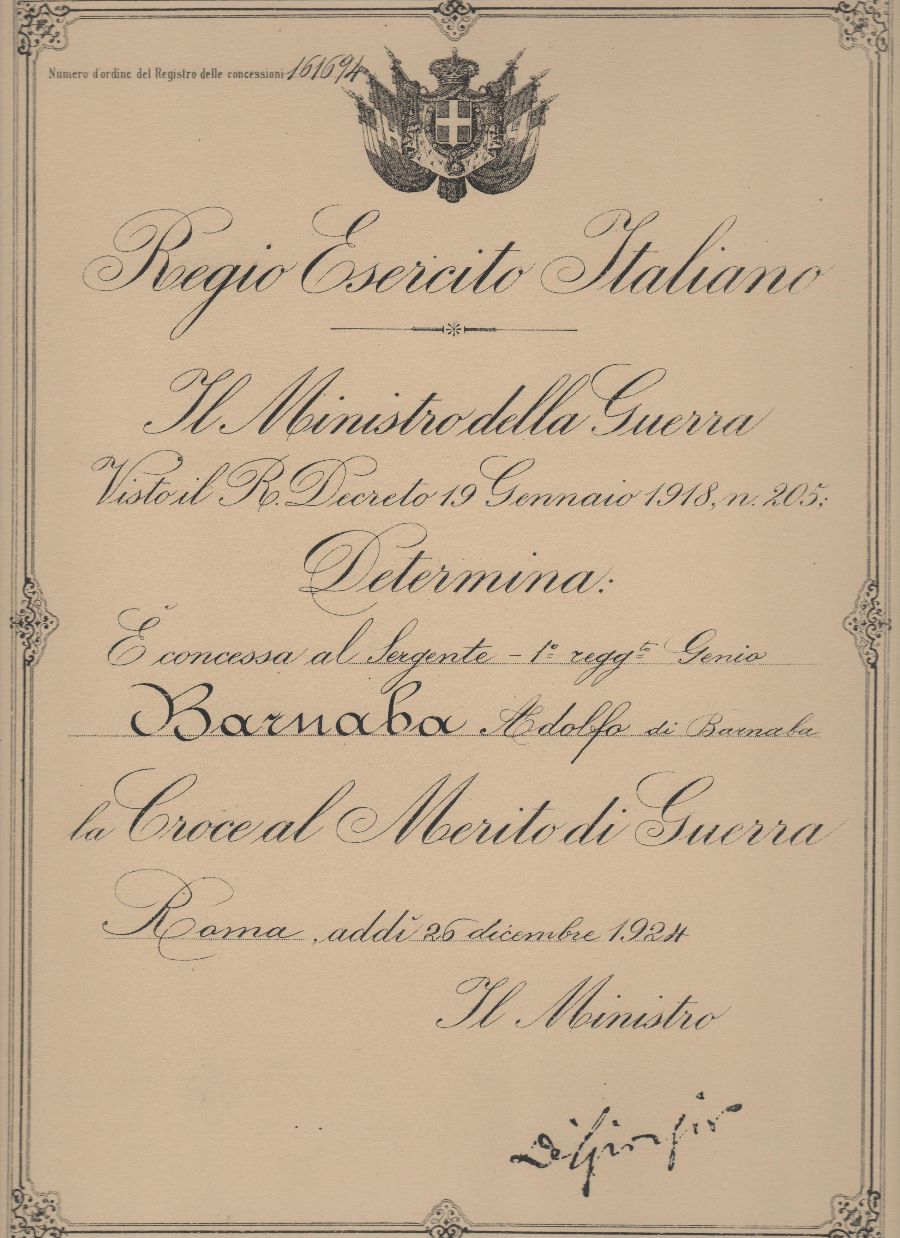 Numero d'ordine del Registro delle concessioni 161694
Regio Esercito Italiano
Il Ministro della Guerra
Visto il R. Decreto 19 Gennaio 1918, n. 205:
Determina:
È concessa al Sergente - 1° regg.to Genio
Barnaba Adolfo di Barnaba
la Croce al Merito di Guerra
Roma, addì 26 dicembre 1924
Il Ministro
Di Giorgio